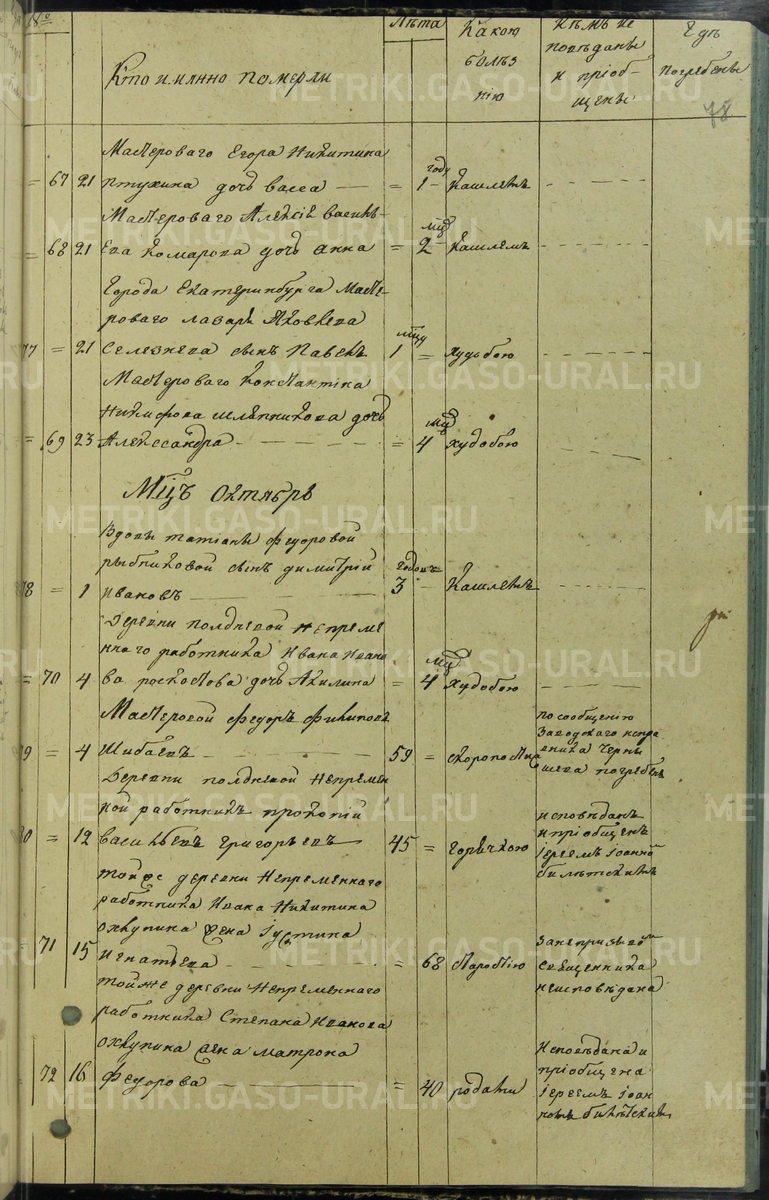 18го
Кто имянно померли
Лѣта
Какою болѣз нію
Кѣмъ не повѣданы и пріоб- щены
Гдѣ погребены
78
Мастероваго Егора Никитина
67 21 птухина дочь васса = 1 году кашлемъ
Мастероваго Алексіе василь-
68 21 ева комарова дочь анна = 2 мцд кашлемъ
Города Екатеринбурга Масте-
роваго лазаря Яковлева
77 = 21 Селезнева сынъ Павелъ 1 = худобою
Мастероваго Константіна
Никифова шляпникова дочь
= 69 23 Александра = 4 мцд худобою
Мцъ октябрь
Вдовы татіаны федоровой
рыбниковой сынъ димитрій
78 = 1 ивановъ 3 годовъ кашлемъ
Деревни полдневой непреме
ннаго работника Ивана Ивано
= 70 4 ва роскостова дочь Акилина = 4 мцд худобою
Мастеровой федоръ филиповъ
79 = 4 шибаевъ 59 = скоропостиж
по сообщенію
Заводскаго испра
вника черны
шева погребенъ
Деревни полдневой непремен
ной работникъ прокопій
80 = 12 васильевъ григорьевъ 45 = горячкою
исповѣданъ
и пріобщенъ
іереемъ іоанно
билѣтскимъ
тойже деревни непременнаго
работника Ивана Никитина
охлупина жена іустина
71 15 игнатьева = 68 старостію
занепризывом
священника
неисповѣдана
тойже деревни непременнаго
работника Степана Иванова
охлупина жена матрона
72 16 федорова = 40 родами
Исповѣдана и
пріобщена
іереемъ іоан
номъ билѣтскимъ
METRIKI.GASO-URAL.RU